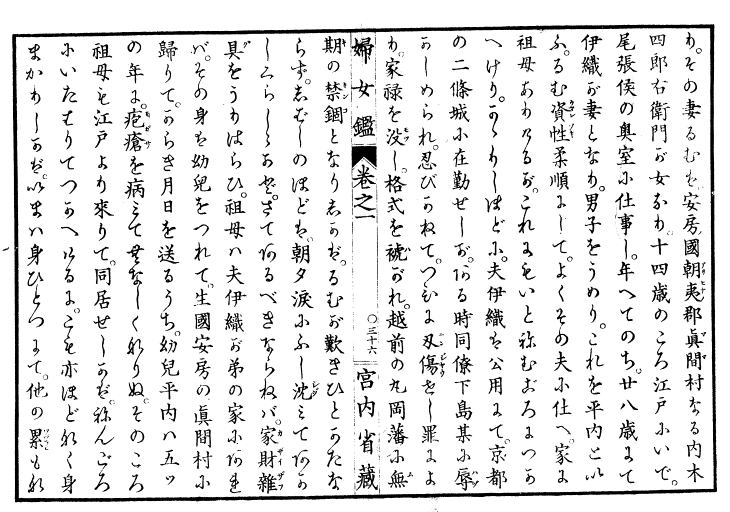 り。その妻るむは安房國朝夷郡眞間村なる内木
四郎右衛門が女なり。十四歳のころ江戸にいで。
尾張侯の奥室に仕事し。年へてのち。廿八歳にて
伊織が妻となり。男子をうめり。これを平内とい
ふ。るむ資性柔順にして。よくその夫に仕へ。家に
祖母ありけるが。これにもいとねむごろにつか
へけり。かゝりしほどに。夫伊織は公用にて。京都
の二條城に在勤せしが。ある時同僚下島某に辱
かしめられ。忍びかねて。つひに刃傷せし罪によ
り。家禄を没し。格式を褫がれ。越前の丸岡藩に無
婦女鑑 巻之一 〇三十六 宮内省藏
期の禁錮となりしかば。るむが歎きひとかたな
らず。しばしのほどは。朝夕涙にふし沈ミてあか
しくらしゝかど。さてあるべきならねバ。家財雜
具をうりはらひ。祖母ハ夫伊織が弟の家に
バ。その身は幼兒をつれて。生國安房の眞間村に
歸りて。からき月日を送るうち。幼兒平内ハ五ツ
の年に。疱瘡を病ミてむなしくなりぬ。そのころ
祖母も江戸より來りて。同居せしかば。ねんごろ
にいたはりてつかへけるに。こも亦ほどなく身
まかりしかば。いまハ身ひとつにて。他の累もな